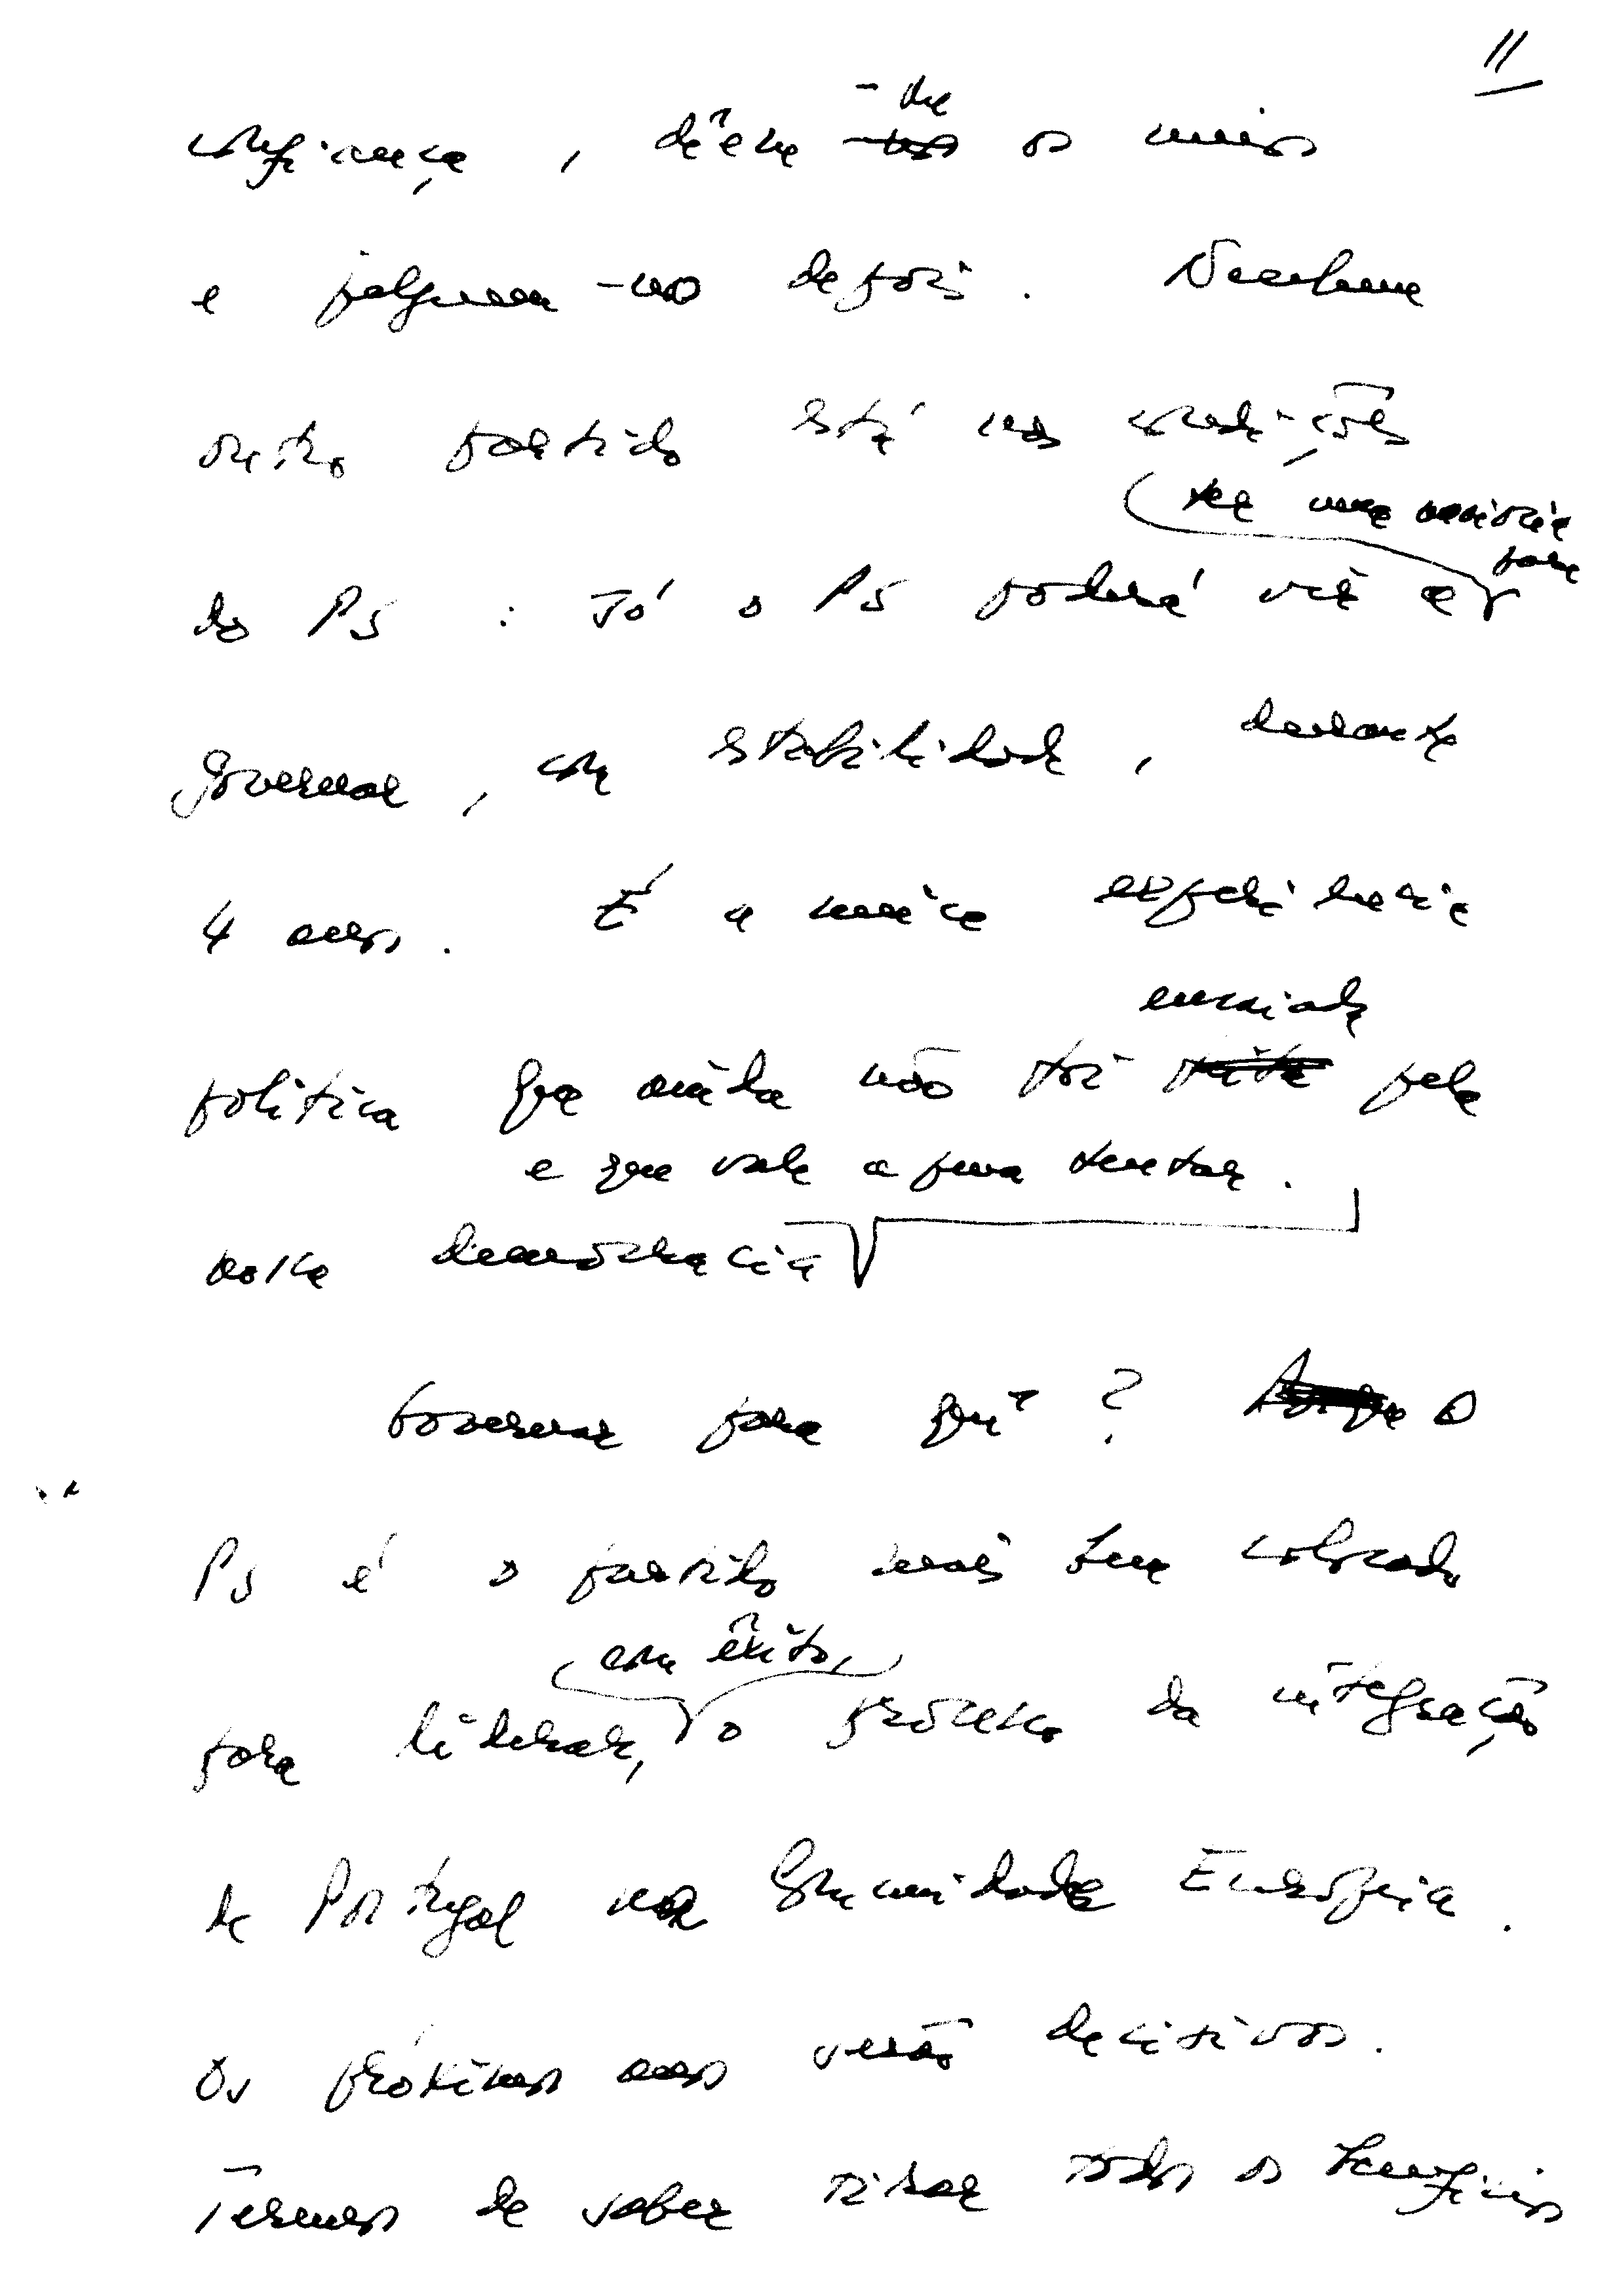 11
confiança, dêem-lhe os meios
e julguem-no depois. Nenhum
outro partido está nas condições
do PS: só o PS poderá vir a
ter uma maioria
para
governar, com estabilidade, durante
4 anos. É a única experiência
ensaiada
política que ainda não foi feita pela
e que vale a pena tentar.
nossa democracia
Governar para quê? O
PS é o partido mais bem colocado
com êxito,
para liderar, o processo da integração
de Portugal na Comunidade Europeia.
Os próximos anos serão decisivos.
Teremos de saber tirar todos os benefícios